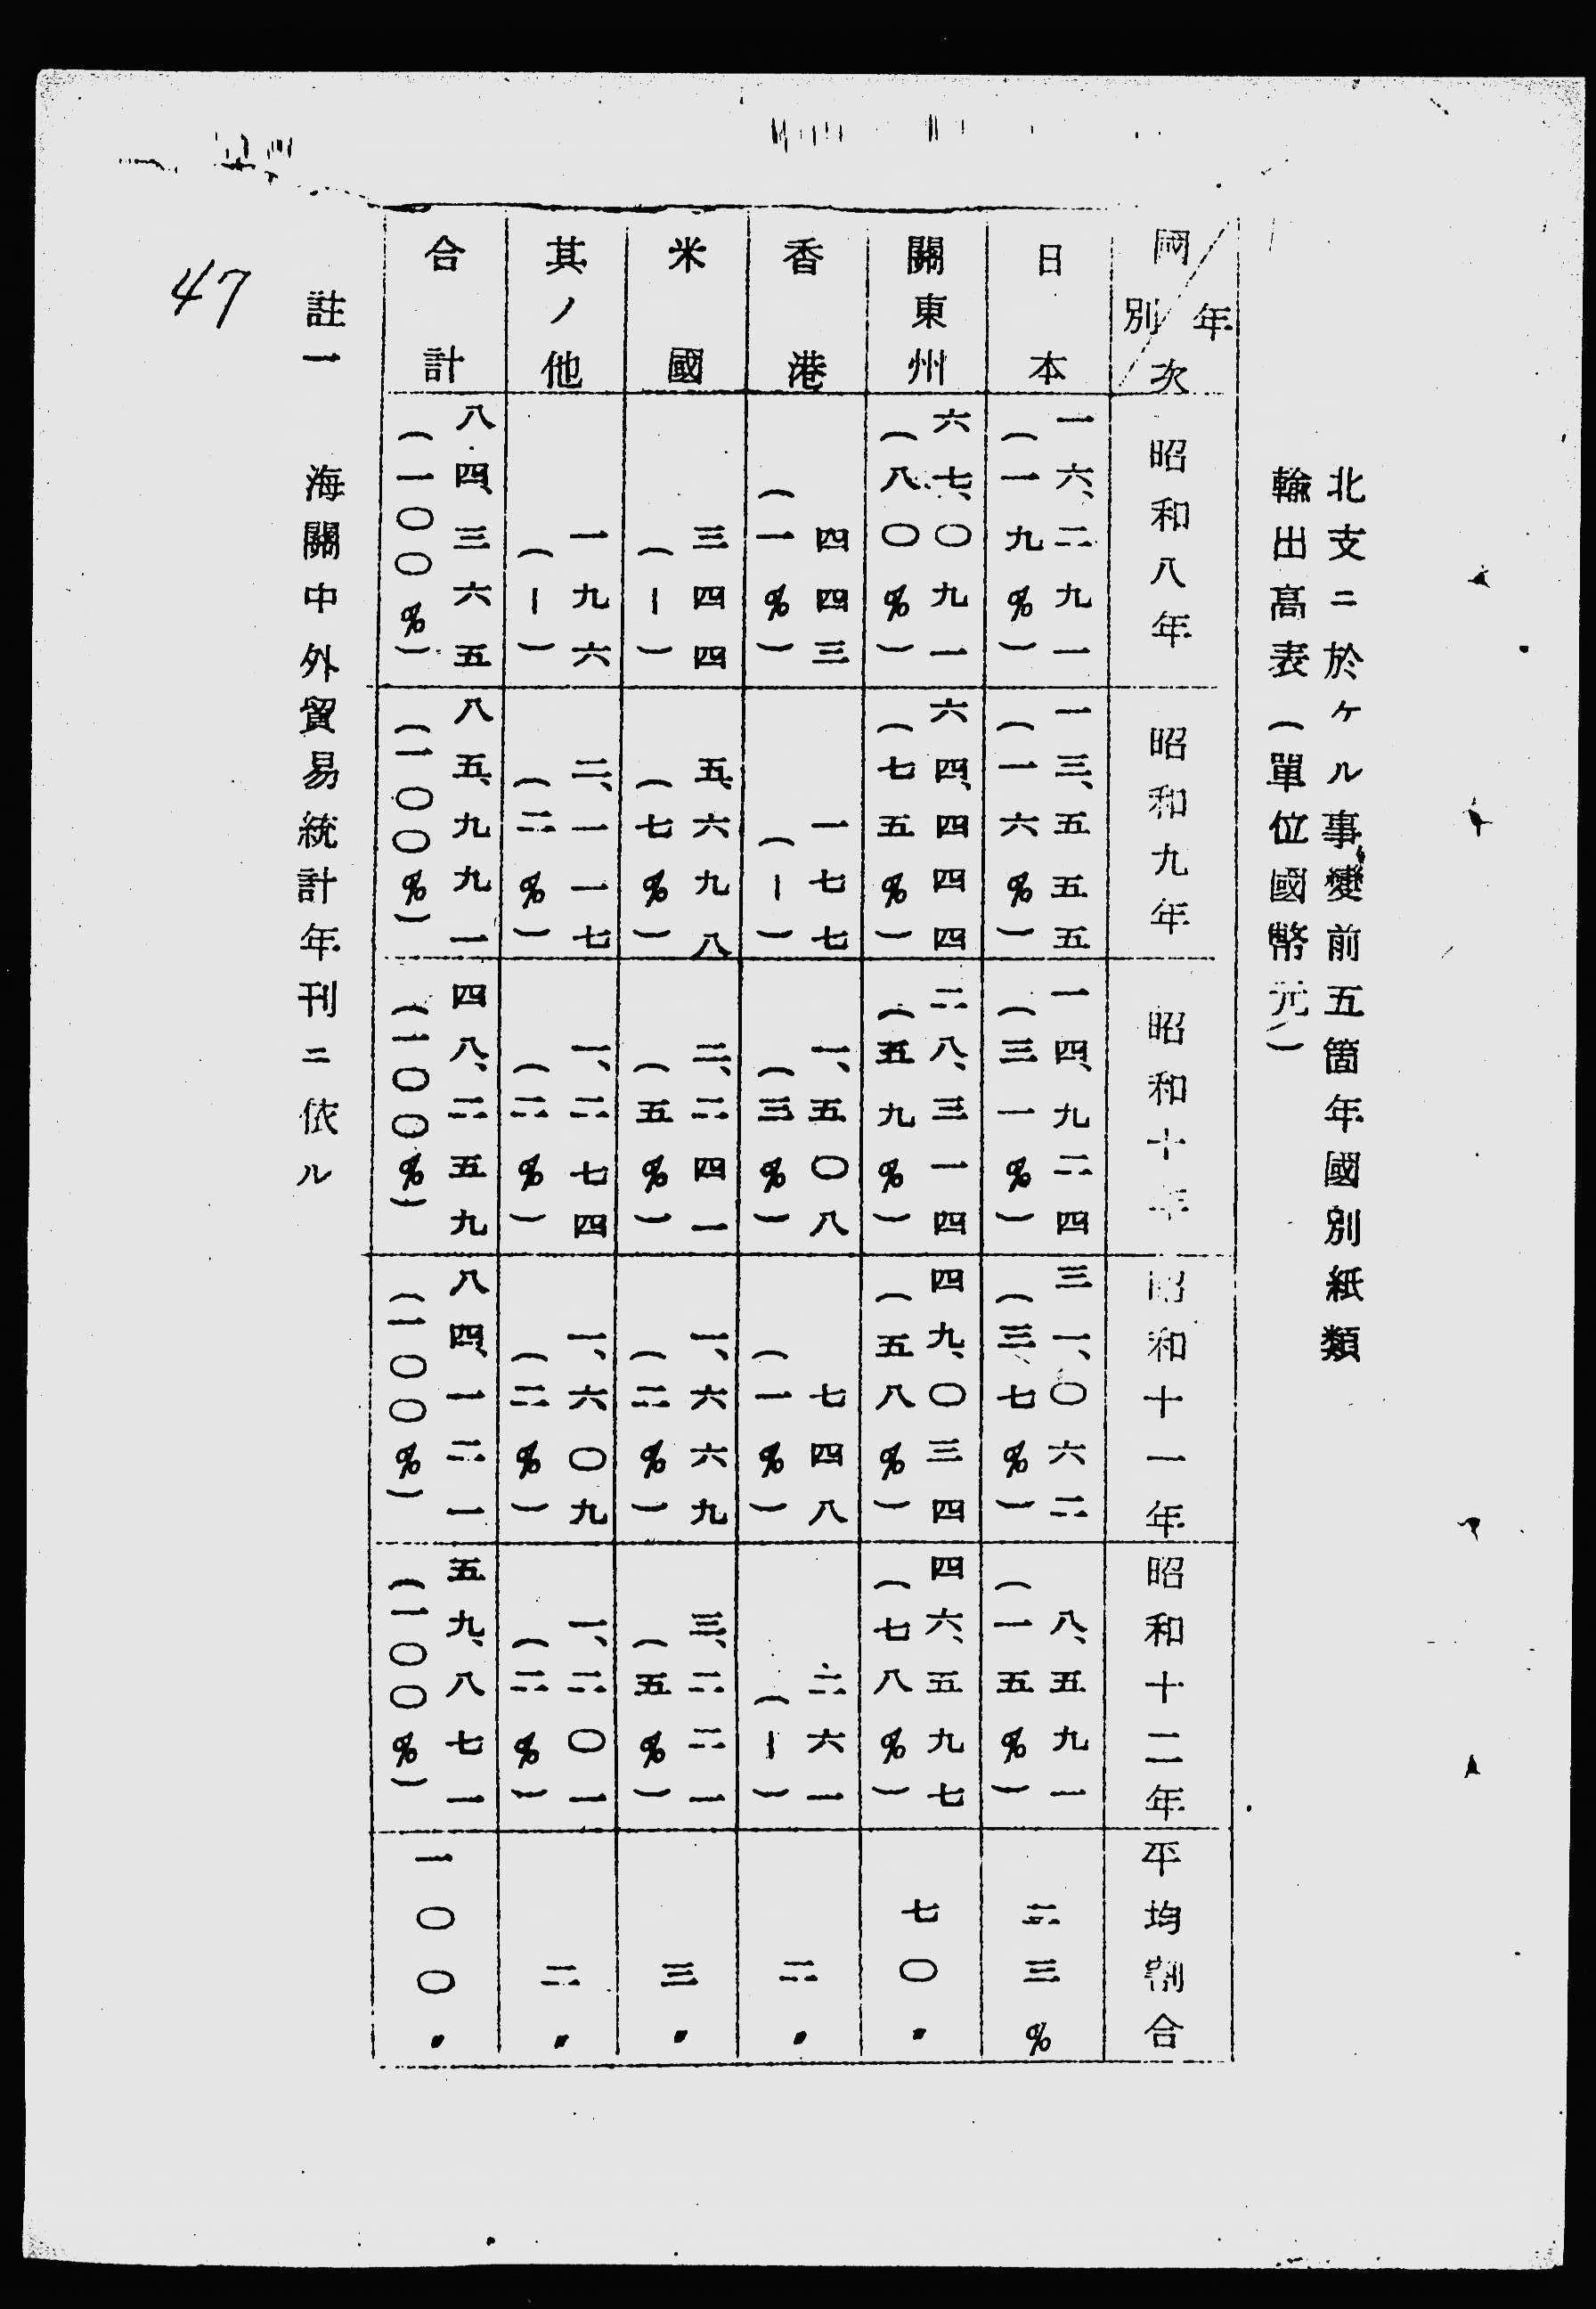 北支ニ於ケル事變前五箇年國別紙類
輸出高表(單位國幣元)
國別 年次
昭和八年
昭和九年
昭和十年
昭和十一年
昭和十二年
平均割合
日本
一六、二九一
(一九%)
一三、五五五
(一六%)
一四、九二四
(三一%)
三一、〇六二
(三七%)
八、五九一
(一五%)
二三%
關東州
六七、〇九一
(八〇%)
六四、四四四
(七五%)
二八、三一四
(五九%)
四九、〇三四
(五八%)
四六、五九七
(七八%)
七〇〃
香港
四四三
(一%)
一七七
(ー)
一、五〇八
(三%)
七四八
(一%)
二六一
(ー)
二〃
米國
三四四
(ー)
五、六九八
(七%)
二、二四一
(五%)
一、六六九
(二%)
三、二二一
(五%)
三〃
其ノ他
一九六
(ー)
二、一一七
(二%)
一、二七四
(二%)
一、六〇九
(二%)
一、二〇一
(二%)
二〃
合計
八四、三六五
(一〇〇%)
八五、九九一
(一〇〇%)
四八、二五九
(一〇〇%)
八四、一二一
(一〇〇%)
五九、八七一
(一〇〇%)
一〇〇〃
註一 海關中外貿易統計年刊ニ依ル
47